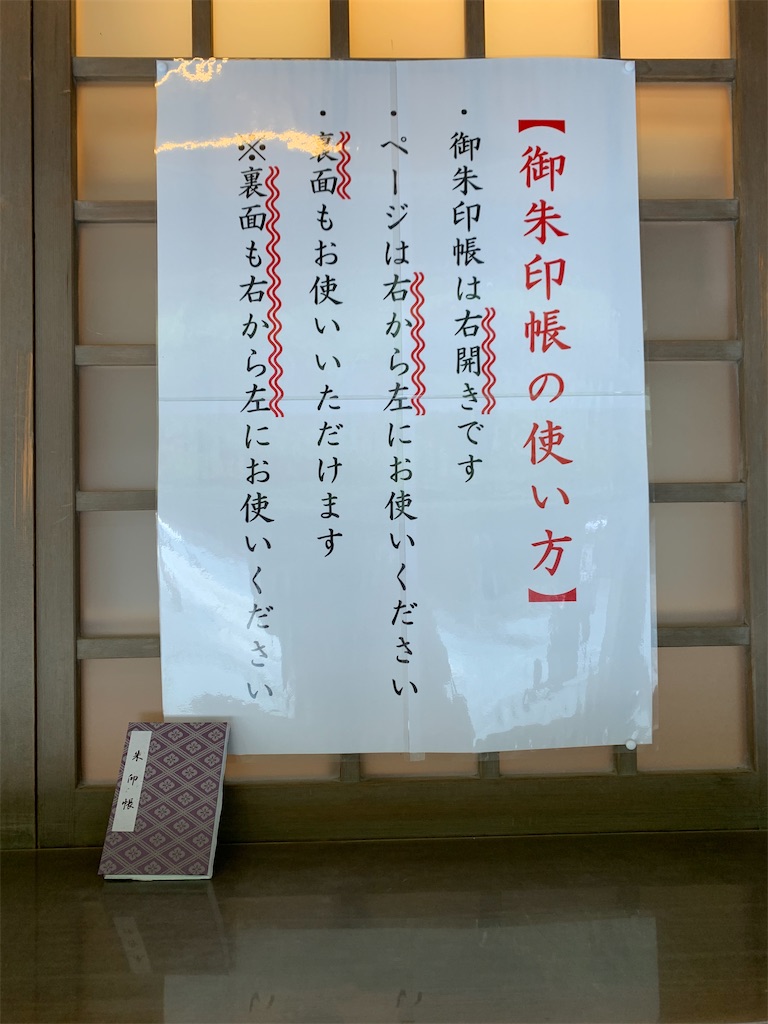 【御朱印帳の使い方】
・御朱印帳は右開きです
・ページは右から左にお使いください
・裏面もお使いいただけます
※裏面も右から左にお使いください
朱印帳